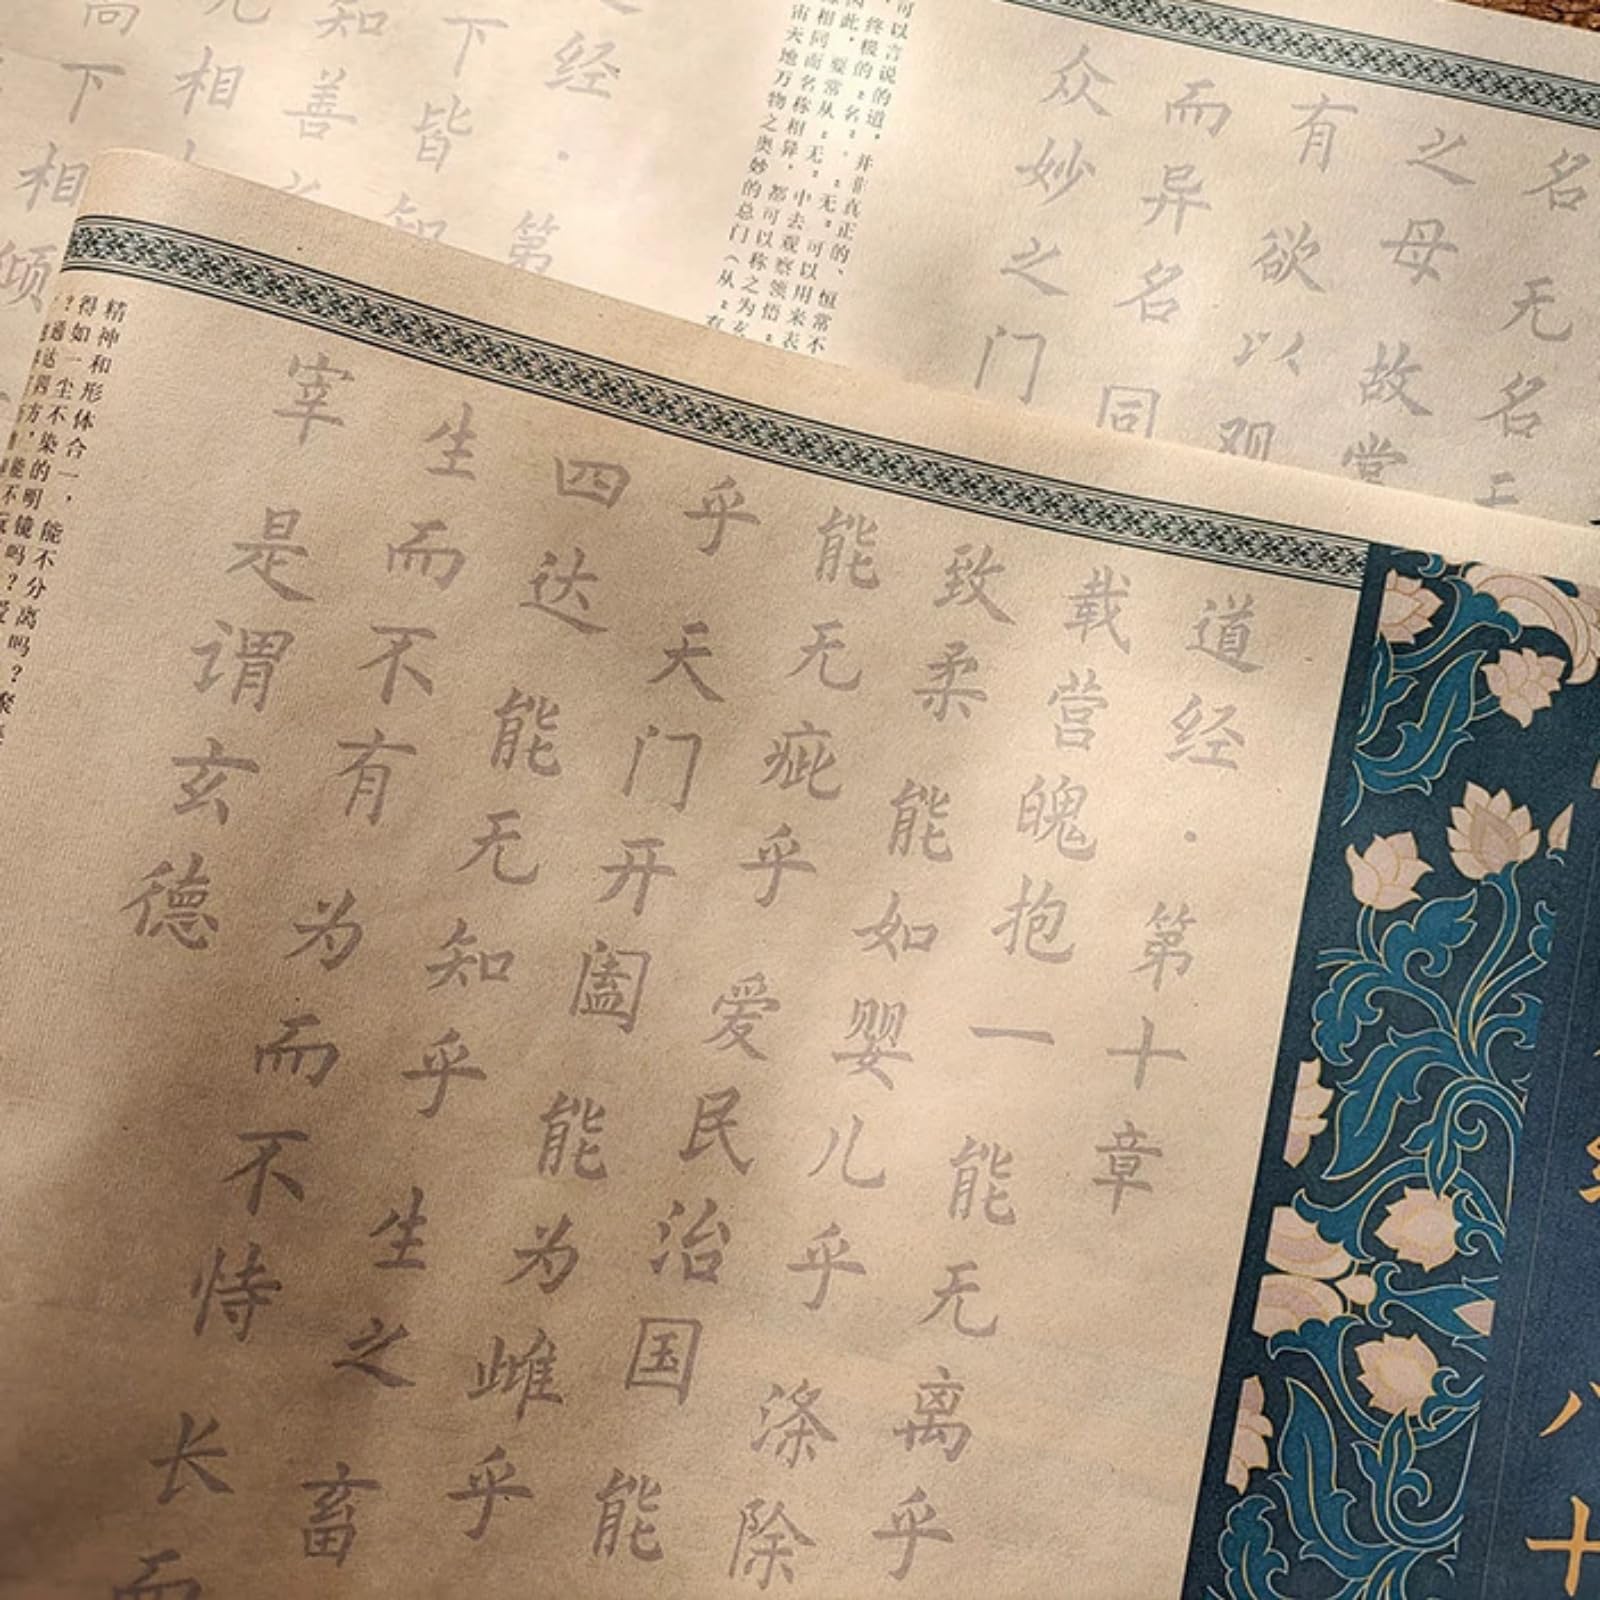 名无名
之母故常
有欲以观
而异名同
众妙之门
可以言说的道，并非真正的、恒常不
终极的“名”。“无”可以用来表
因此，要常从“无”中去观察领悟“
相同而名称相异，都可以称之为玄
宙天地万物之奥妙的总门（从“有
经·第
下皆知
知善
相
高下
相倾
八十
道经·第十章
载营魄抱一能无离乎
致柔能如婴儿乎涤除
能无疵乎爱民治国能
乎天门开阖能为雌乎
四达能无知乎生之畜
生而不有为而不恃长而
宰是谓玄德
精神和形体合一，能不分离吗？聚
得如一尘不染的明镜吗？爱
？通达四方，能不